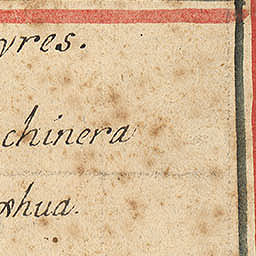 yres.
chinera
hua.